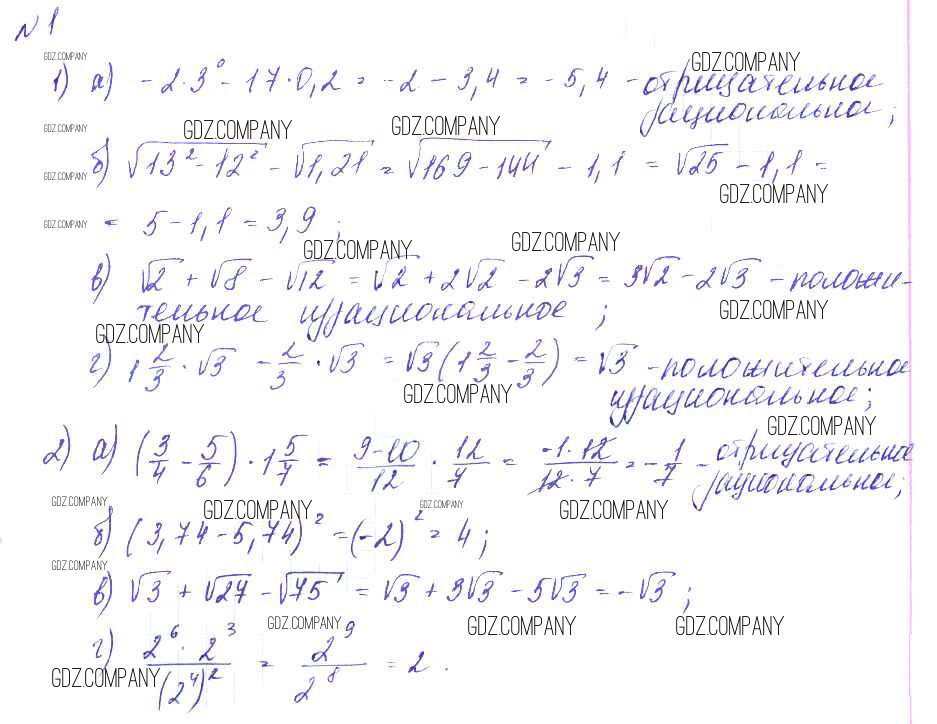 №1
GDZ.COMPANY GDZ.COMPANY
1) а) -2·3⁰ - 17·0,2 = -2 - 3,4 = -5,4 - отрицательное
рациональное;
GDZ.COMPANY GDZ.COMPANY GDZ.COMPANY
б) √(13² - 12²) - √1,21 = √(169 - 144) - 1,1 = √25 - 1,1 =
GDZ.COMPANY GDZ.COMPANY
GDZ.COMPANY = 5 - 1,1 = 3,9;
GDZ.COMPANY GDZ.COMPANY
в) √2 + √8 - √12 = √2 + 2√2 - 2√3 = 3√2 - 2√3 - положи-
тельное иррациональное; GDZ.COMPANY
GDZ.COMPANY
г) 1 2/3 · √3 - 2/3 · √3 = √3 (1 2/3 - 2/3) = √3 - положительное
GDZ.COMPANY иррациональное;
GDZ.COMPANY
2) а) (3/4 - 5/6) · 1 5/7 = (9-10)/12 · 12/7 = (-1·12)/(12·7) = -1/7 - отрицательное
рациональное;
GDZ.COMPANY GDZ.COMPANY GDZ.COMPANY GDZ.COMPANY
б) (3,74 - 5,74)² = (-2)² = 4;
GDZ.COMPANY
в) √3 + √27 - √75 = √3 + 3√3 - 5√3 = -√3;
GDZ.COMPANY GDZ.COMPANY GDZ.COMPANY
г) (2⁶ · 2³)/(2⁴)² = 2⁹/2⁸ = 2.
GDZ.COMPANY